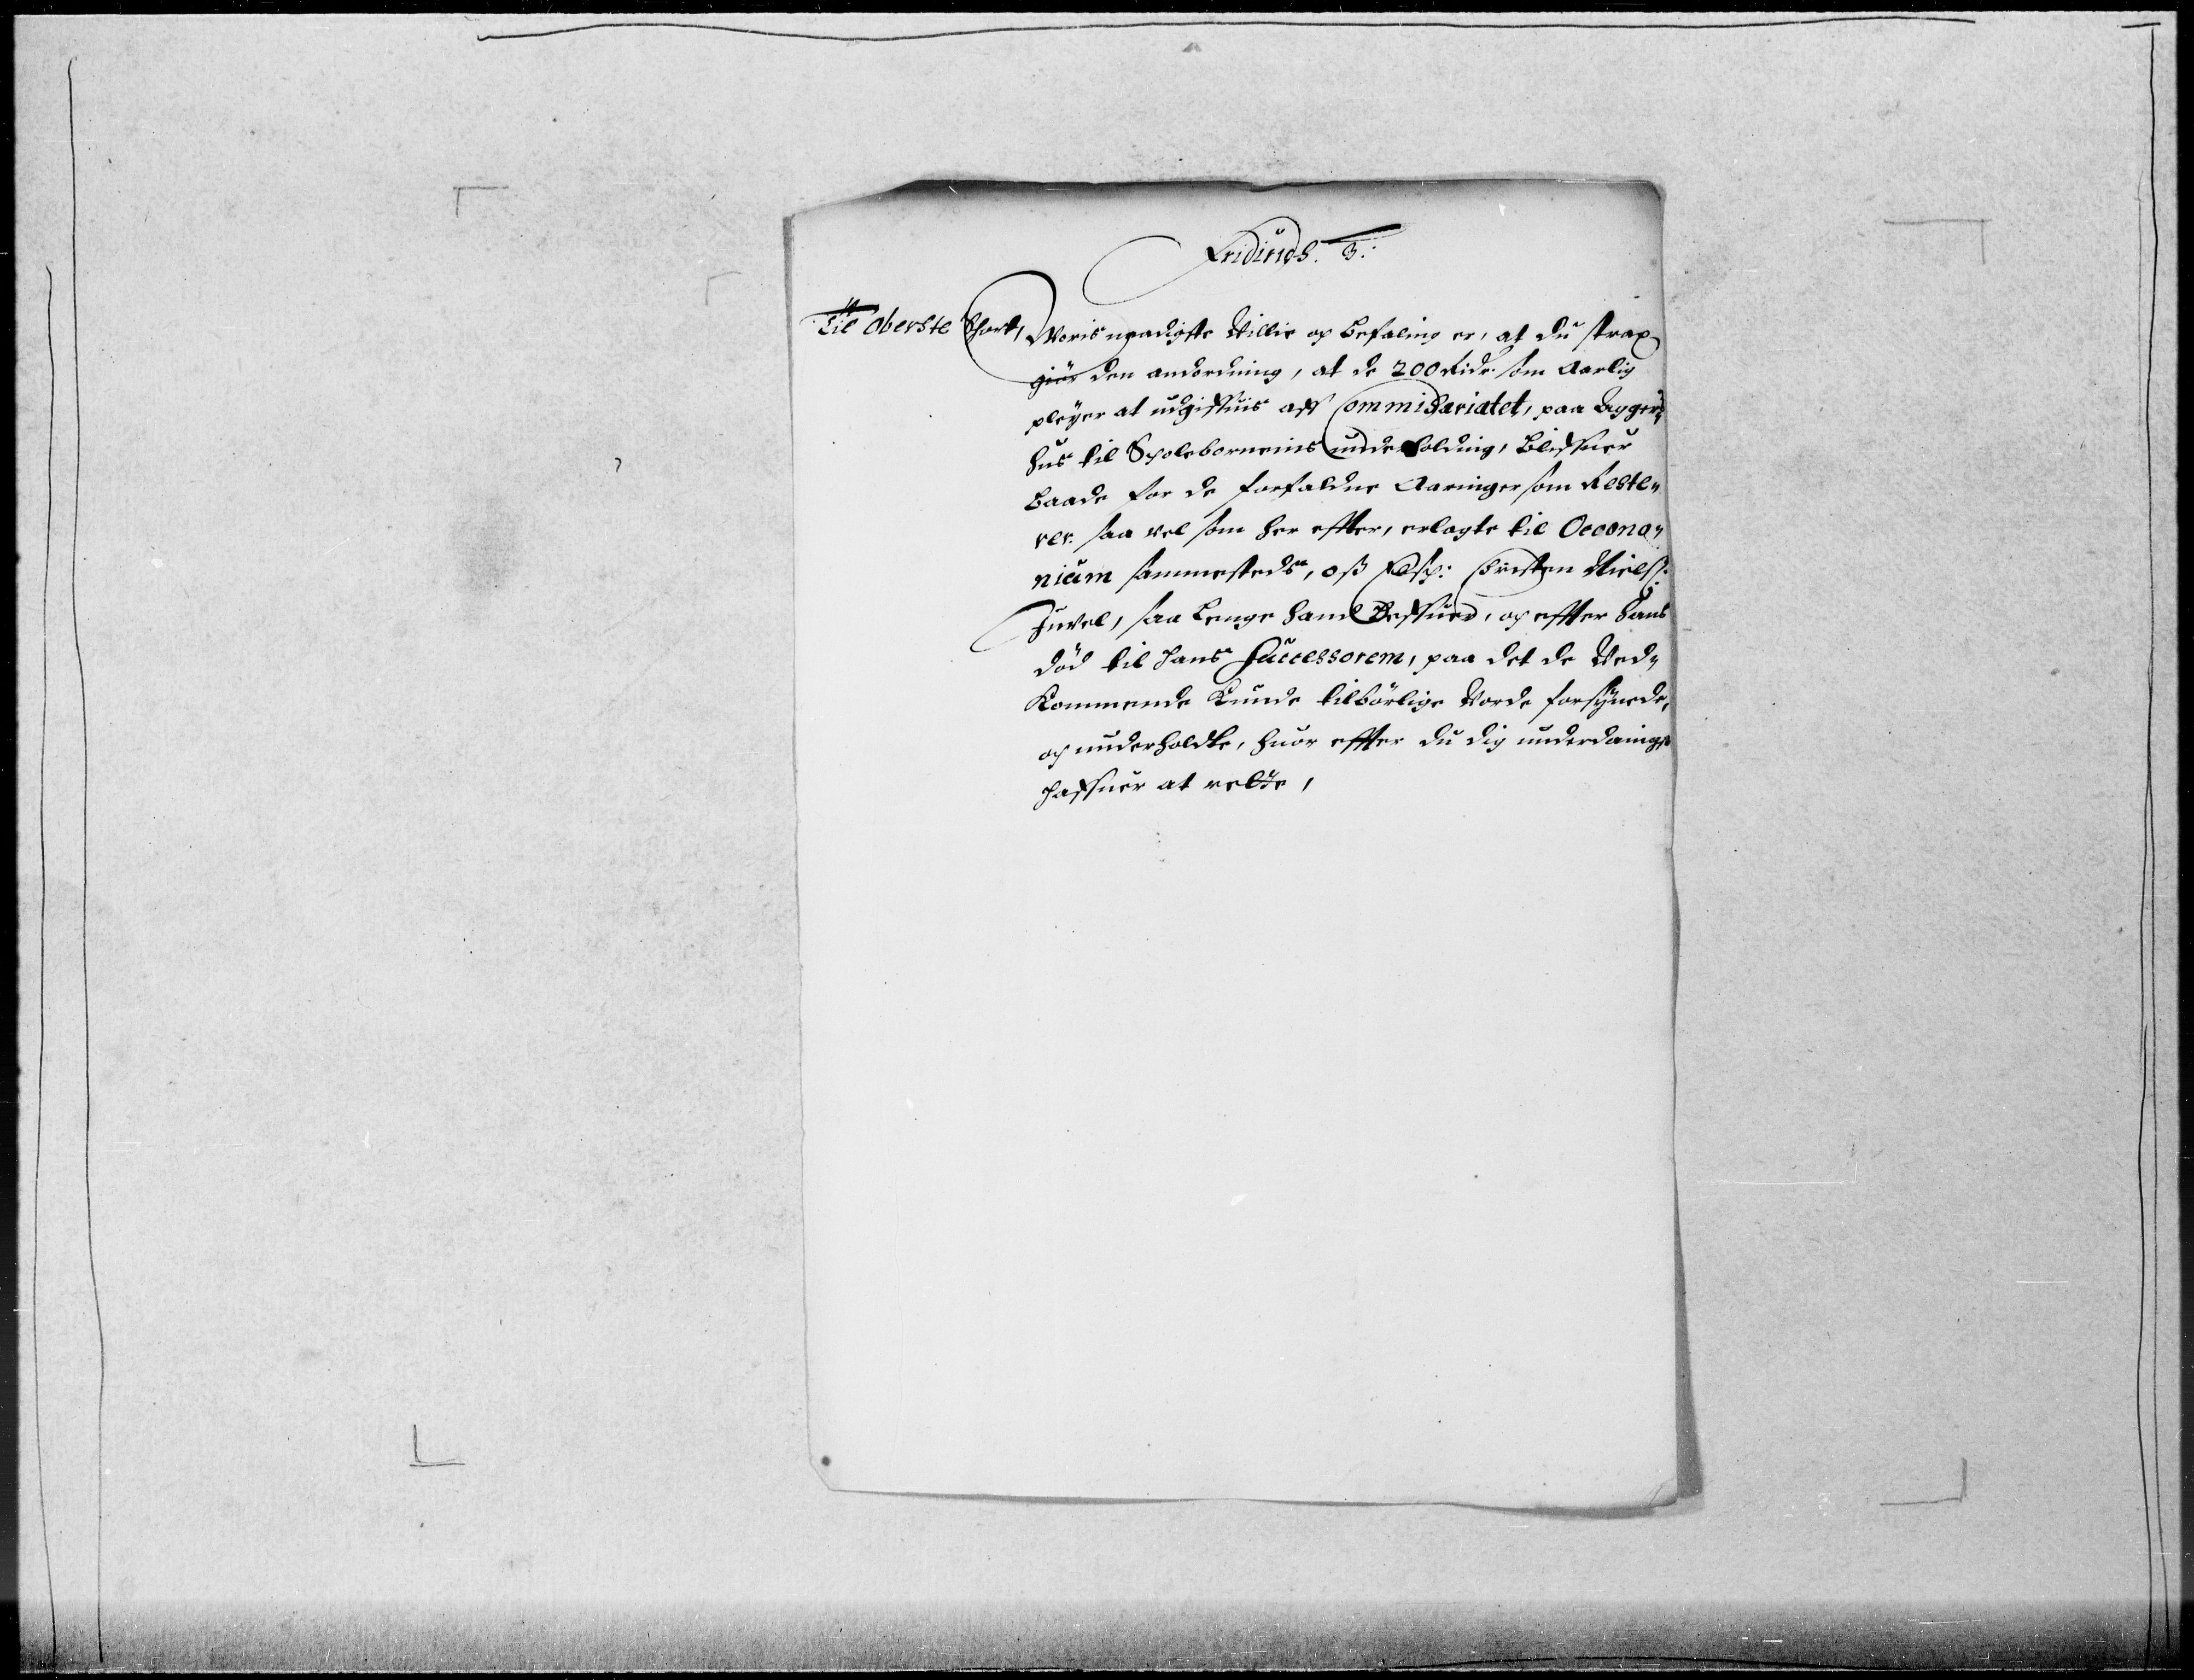 Friderich. 3:
Til Oberste Schort, Voris naadigste Villie og befaling er, at du strax
giör den anordning, at de 200 Ridr. som Aarlig
pleyer at udgiffuis aff Commissariatet, paa Agger„
hus til Scholebørneins underholding, bliffuer
baade for de forfaldne Aaringer som Reste„
rer. saa vel som her effter, erlagte til Oecono„
nium sammesteds, oß Elsk: Christen Nielß:
Juvel, saa lenge hand leffuer, og effter hans
död til hans Successorem, paa det de Ved„
kommende kunde tilbörlige vorde forsÿnede,
og underholdte, huor effter du dig underdanigst
haffuer at rette,